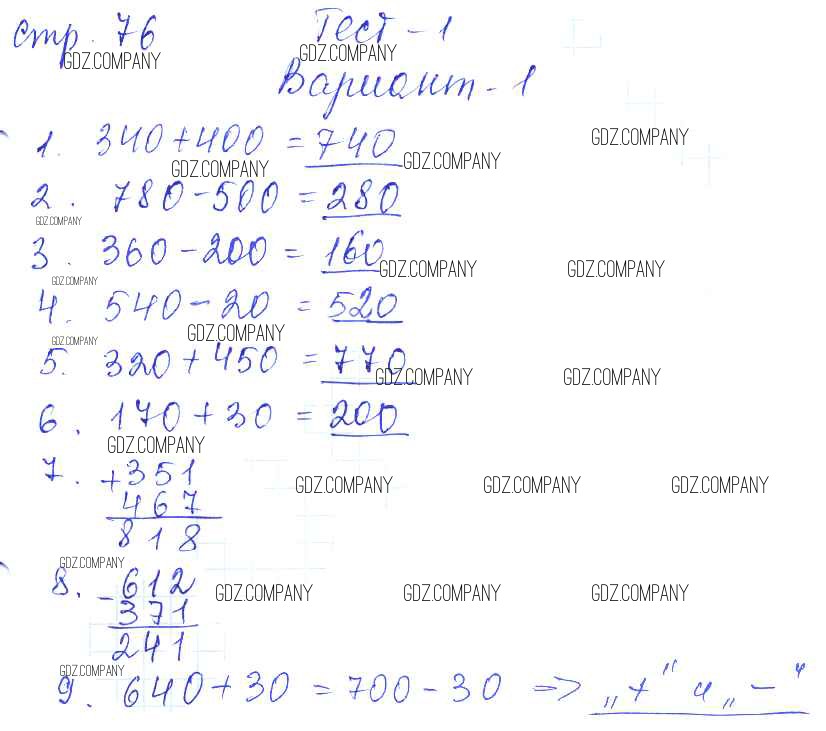 стр. 76 Тест - 1
GDZ.COMPANY GDZ.COMPANY
Вариант - 1
1. 340 + 400 = 740 GDZ.COMPANY
GDZ.COMPANY GDZ.COMPANY
2. 780 - 500 = 280
GDZ.COMPANY
3. 360 - 200 = 160
GDZ.COMPANY GDZ.COMPANY
GDZ.COMPANY
4. 540 - 20 = 520
GDZ.COMPANY
GDZ.COMPANY
5. 320 + 450 = 770
GDZ.COMPANY GDZ.COMPANY
6. 170 + 30 = 200
GDZ.COMPANY
7. +351
GDZ.COMPANY GDZ.COMPANY GDZ.COMPANY
467
818
GDZ.COMPANY
8. -612
GDZ.COMPANY GDZ.COMPANY GDZ.COMPANY
371
241
GDZ.COMPANY
9. 640 + 30 = 700 - 30 => „+" и „-"